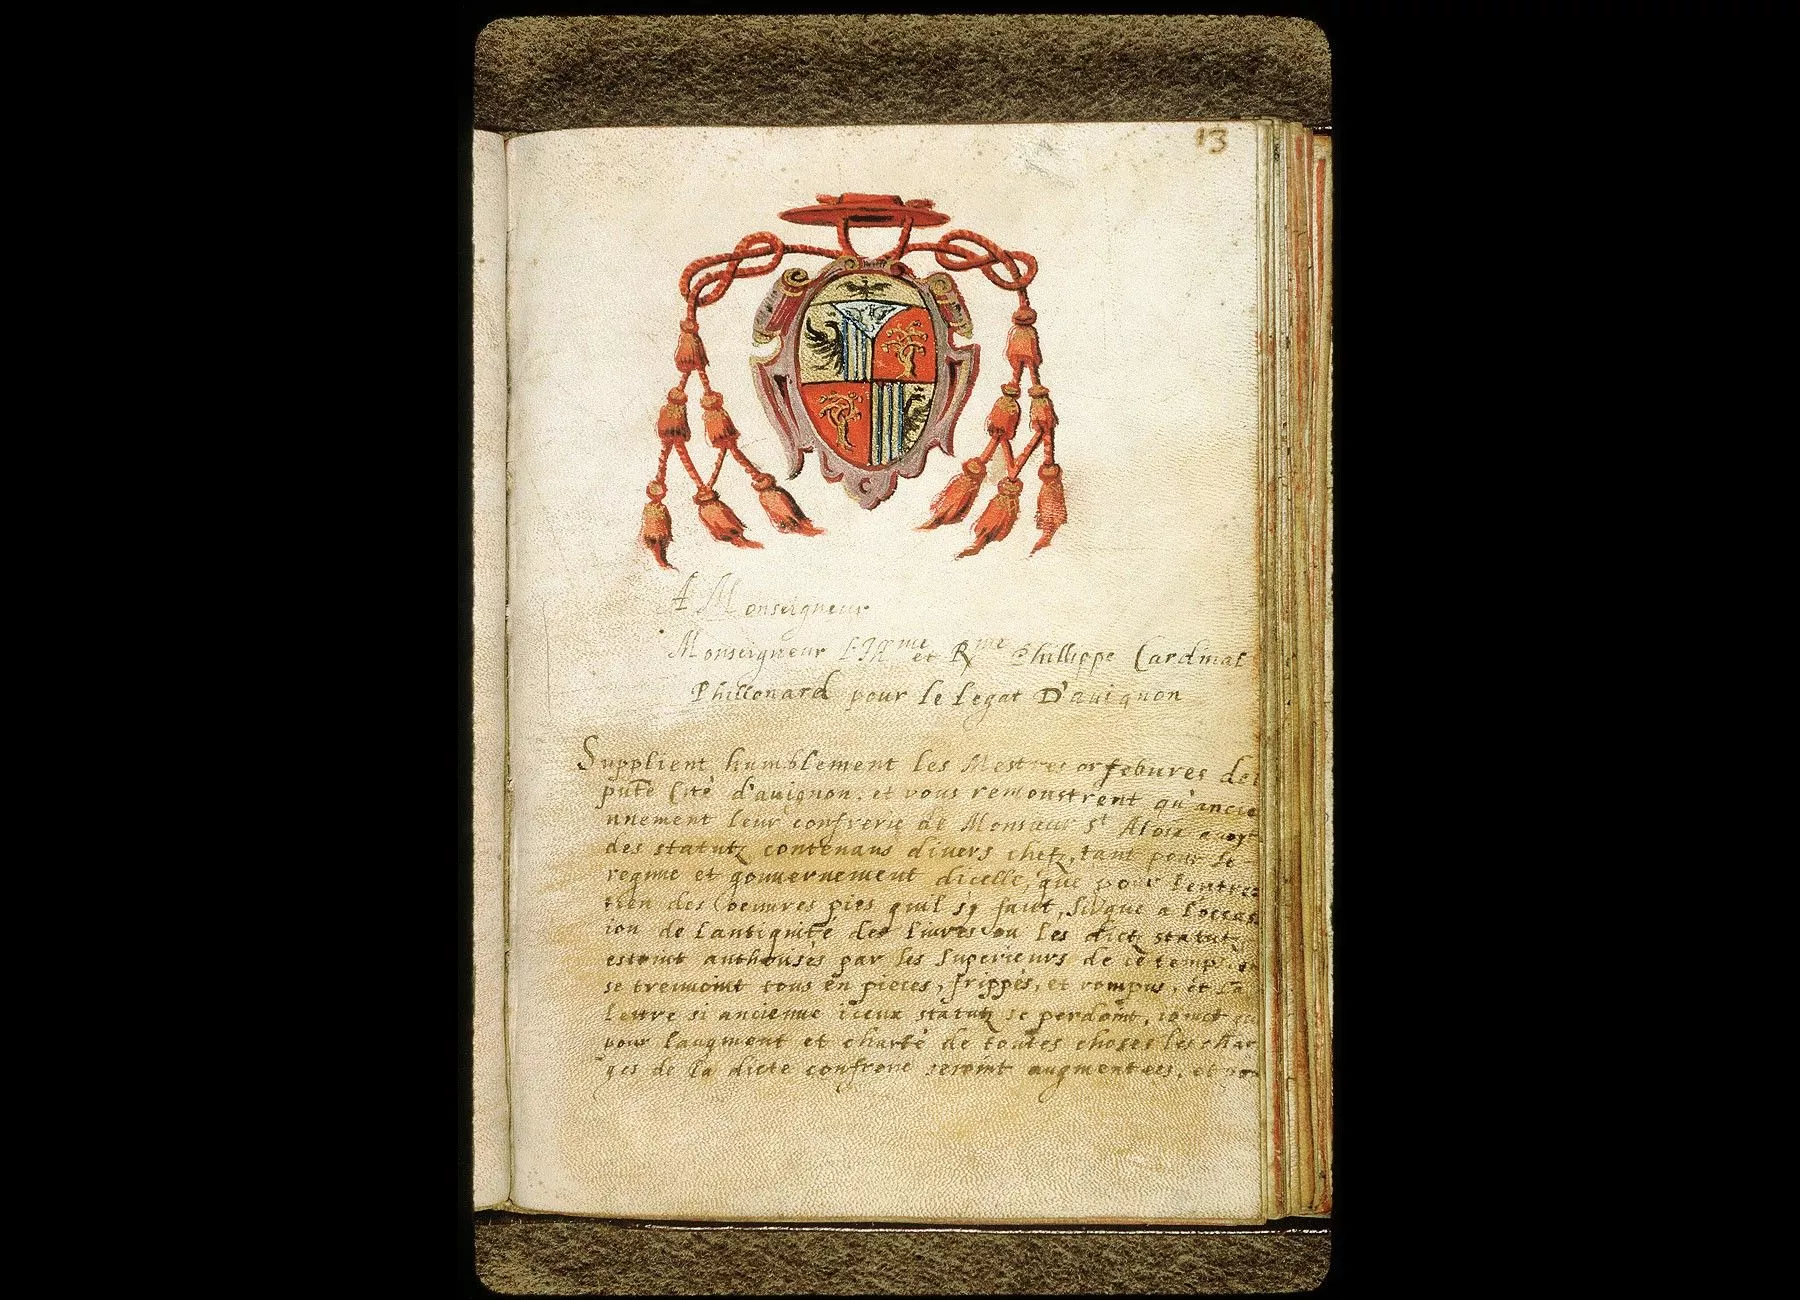 13
A Monseigneur
Monseigneur L'Illme et Rme Phillippe Cardinal
Phillonard pour le legat D'auignon
Supplient humblement les Mestres orfebures de
pute Cité d'auignon. et vous remonstrent qu'ancie
nnement leur confrerie de Monsieur St Aloix avoyt
des statutz contenans divers chefz, tant pour le
regime et gouvernement dicelle, que pour l'entre=
tien des Coeuures pies quil sy faict, que a l'occas
ion de l'antiquité des liures ou les dictz statutz
estoint authorisés par les Superieurs de ce temps
se treuuoint tous en pieces, frippés, et rompus, et la
Lettre si ancienne iceux statutz se perdoint, ioinct que
pour l'augment et charté de toutes choses les char
ges de la dicte confrerie seroint augmentees, et